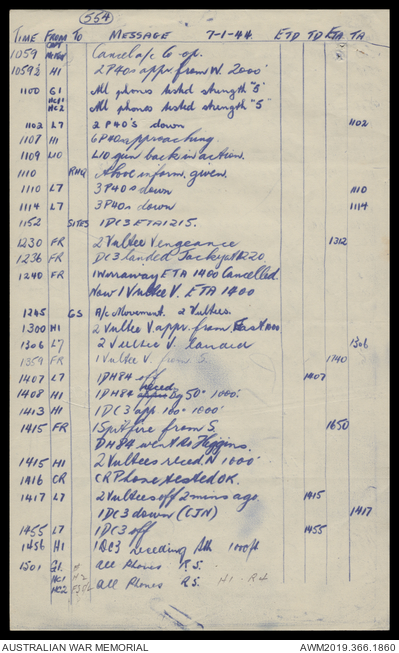 554
TIME FROM TO MESSAGE 7-1-44 ETD TD ETA TA
1059 Cancel a/c G op.
1059½ H1 2 P40s appr from W. 2000'
1100 G1 All phones tested strength "5"
HC1
HC2 All phones tested strength "5"
1102 L7 2 P40's down 1102
1107 111 6 P40s approaching
1109 L10 L10 gun back in action.
1110 RHQ Above inform. given.
1110 L7 3 P40s down 1110
1114 L7 3 P40s down 1114
1152 SITES 1 DC3 ETA 1215.
1230 FR 2 Vultee Vengeance 1312
1236 FR DC3 landed Jackys 1220
1240 FR 1 Wirraway ETA 1400 Cancelled.
Now 1 Vultee V. ETA 1400
1245 GS A/c Movement. 2 Vultees.
1300 H1 2 Vultee V appr. from East
1306 L7 2 Vultee V landed 1306
1359 FR 1 Vultee V. from S. 1740
1407 L7 1 DH84 off 1407
1408 H1 1 DH84 reced. Bg 50° 1000'
1413 H1 1 DC3 app 100° 1000'
1415 FR 1 Spitfire from S. 1650
DH84 went to Higgins.
1415 H1 2 Vultees reced. N 1000'
1416 CR CR Phone tested OK.
1417 L7 2 Vultees off 2 mins ago 1415
1 DC3 down (CJN) 1417
1455 L7 1 DC3 off 1455
1456 H1 1 DC3 receding Sth 1000ft
1501 G1. H All Phones RS.
HC1 H2
HC2 All Phones RS. H1 - R4
AUSTRALIAN WAR MEMORIAL AWM2019.366.1860